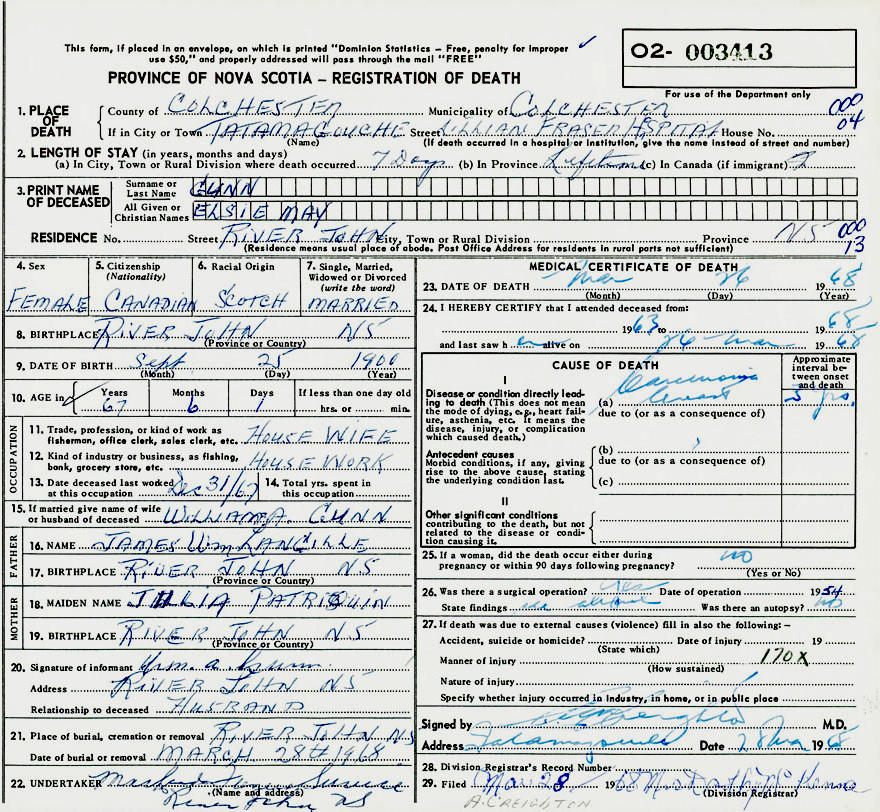 This form, if placed in an envelope, on which is printed "Dominion Statistics – Free, penalty for improper
use $50," and properly addressed will pass through the mail "FREE"
PROVINCE OF NOVA SCOTIA – REGISTRATION OF DEATH
O2- 003413
For use of the Department only
1. PLACE OF DEATH
County of COLCHESTER Municipality of COLCHESTER 000
If in City or Town TATAMAGOUCHE Street LILLIAN FRASER HSPITAL House No. 04
(Name) (If death occurred in a hospital or institution, give the name instead of street and number)
2. LENGTH OF STAY (in years, months and days)
(a) In City, Town or Rural Division where death occurred 7 Days (b) In Province Lifetime (c) In Canada (if immigrant)
3. PRINT NAME OF DECEASED
Surname or Last Name GUNN
All Given or Christian Names ELSIE MAY
RESIDENCE No. Street RIVER JOHN City, Town or Rural Division Province NS 000 13
(Residence means usual place of abode. Post Office Address for residents in rural parts not sufficient)
4. Sex
FEMALE
5. Citizenship (Nationality)
CANADIAN
6. Racial Origin
SCOTCH
7. Single, Married, Widowed or Divorced (write the word)
MARRIED
8. BIRTHPLACE RIVER JOHN NS
(Province or Country)
9. DATE OF BIRTH Sept 25 1900
(Month) (Day) (Year)
10. AGE in Years Months Days If less than one day old
67 6 1 hrs. or min.
OCCUPATION
11. Trade, profession, or kind of work as fisherman, office clerk, sales clerk, etc. HOUSE WIFE
12. Kind of industry or business, as fishing, bank, grocery store, etc. HOUSE WORK
13. Date deceased last worked at this occupation Dec 31/67
14. Total yrs. spent in this occupation
15. If married give name of wife or husband of deceased WILLIAM A. GUNN
FATHER
16. NAME JAMES WM LANGILLE
17. BIRTHPLACE RIVER JOHN NS
(Province or Country)
MOTHER
18. MAIDEN NAME JULIA PATRIQUIN
19. BIRTHPLACE RIVER JOHN NS
(Province or Country)
20. Signature of informant Wm. A. Gunn
Address RIVER JOHN NS
Relationship to deceased HUSBAND
21. Place of burial, cremation or removal RIVER JOHN NS
Date of burial or removal MARCH 28th 1968
22. UNDERTAKER
(Name and address)
River John NS
MEDICAL CERTIFICATE OF DEATH
23. DATE OF DEATH Mar 26 1968
(Month) (Day) (Year)
24. I HEREBY CERTIFY that I attended deceased from:
1963 to 1968
and last saw h er alive on 26 Mar 1968
CAUSE OF DEATH
Approximate interval between onset and death
I
Disease or condition directly leading to death (This does not mean the mode of dying, e.g., heart failure, asthenia, etc. It means the disease, injury, or complication which caused death.)
(a) Carcinoma breast 5 yrs.
due to (or as a consequence of)
Antecedent causes
Morbid conditions, if any, giving rise to the above cause, stating the underlying condition last.
(b)
due to (or as a consequence of)
(c)
II
Other significant conditions contributing to the death, but not related to the disease or condition causing it.
25. If a woman, did the death occur either during pregnancy or within 90 days following pregnancy? no
(Yes or No)
26. Was there a surgical operation? yes Date of operation 1954
State findings as above Was there an autopsy? no
27. If death was due to external causes (violence) fill in also the following:–
Accident, suicide or homicide? Date of injury 19
(State which)
Manner of injury 170X
(How sustained)
Nature of injury
Specify whether injury occurred in Industry, in home, or in public place
Signed by M.D.
Address Tatamagouche Date 28 Mar 1968
28. Division Registrar's Record Number
29. Filed Mar 28 1968
(Division Registrar)
A. CREIGHTON